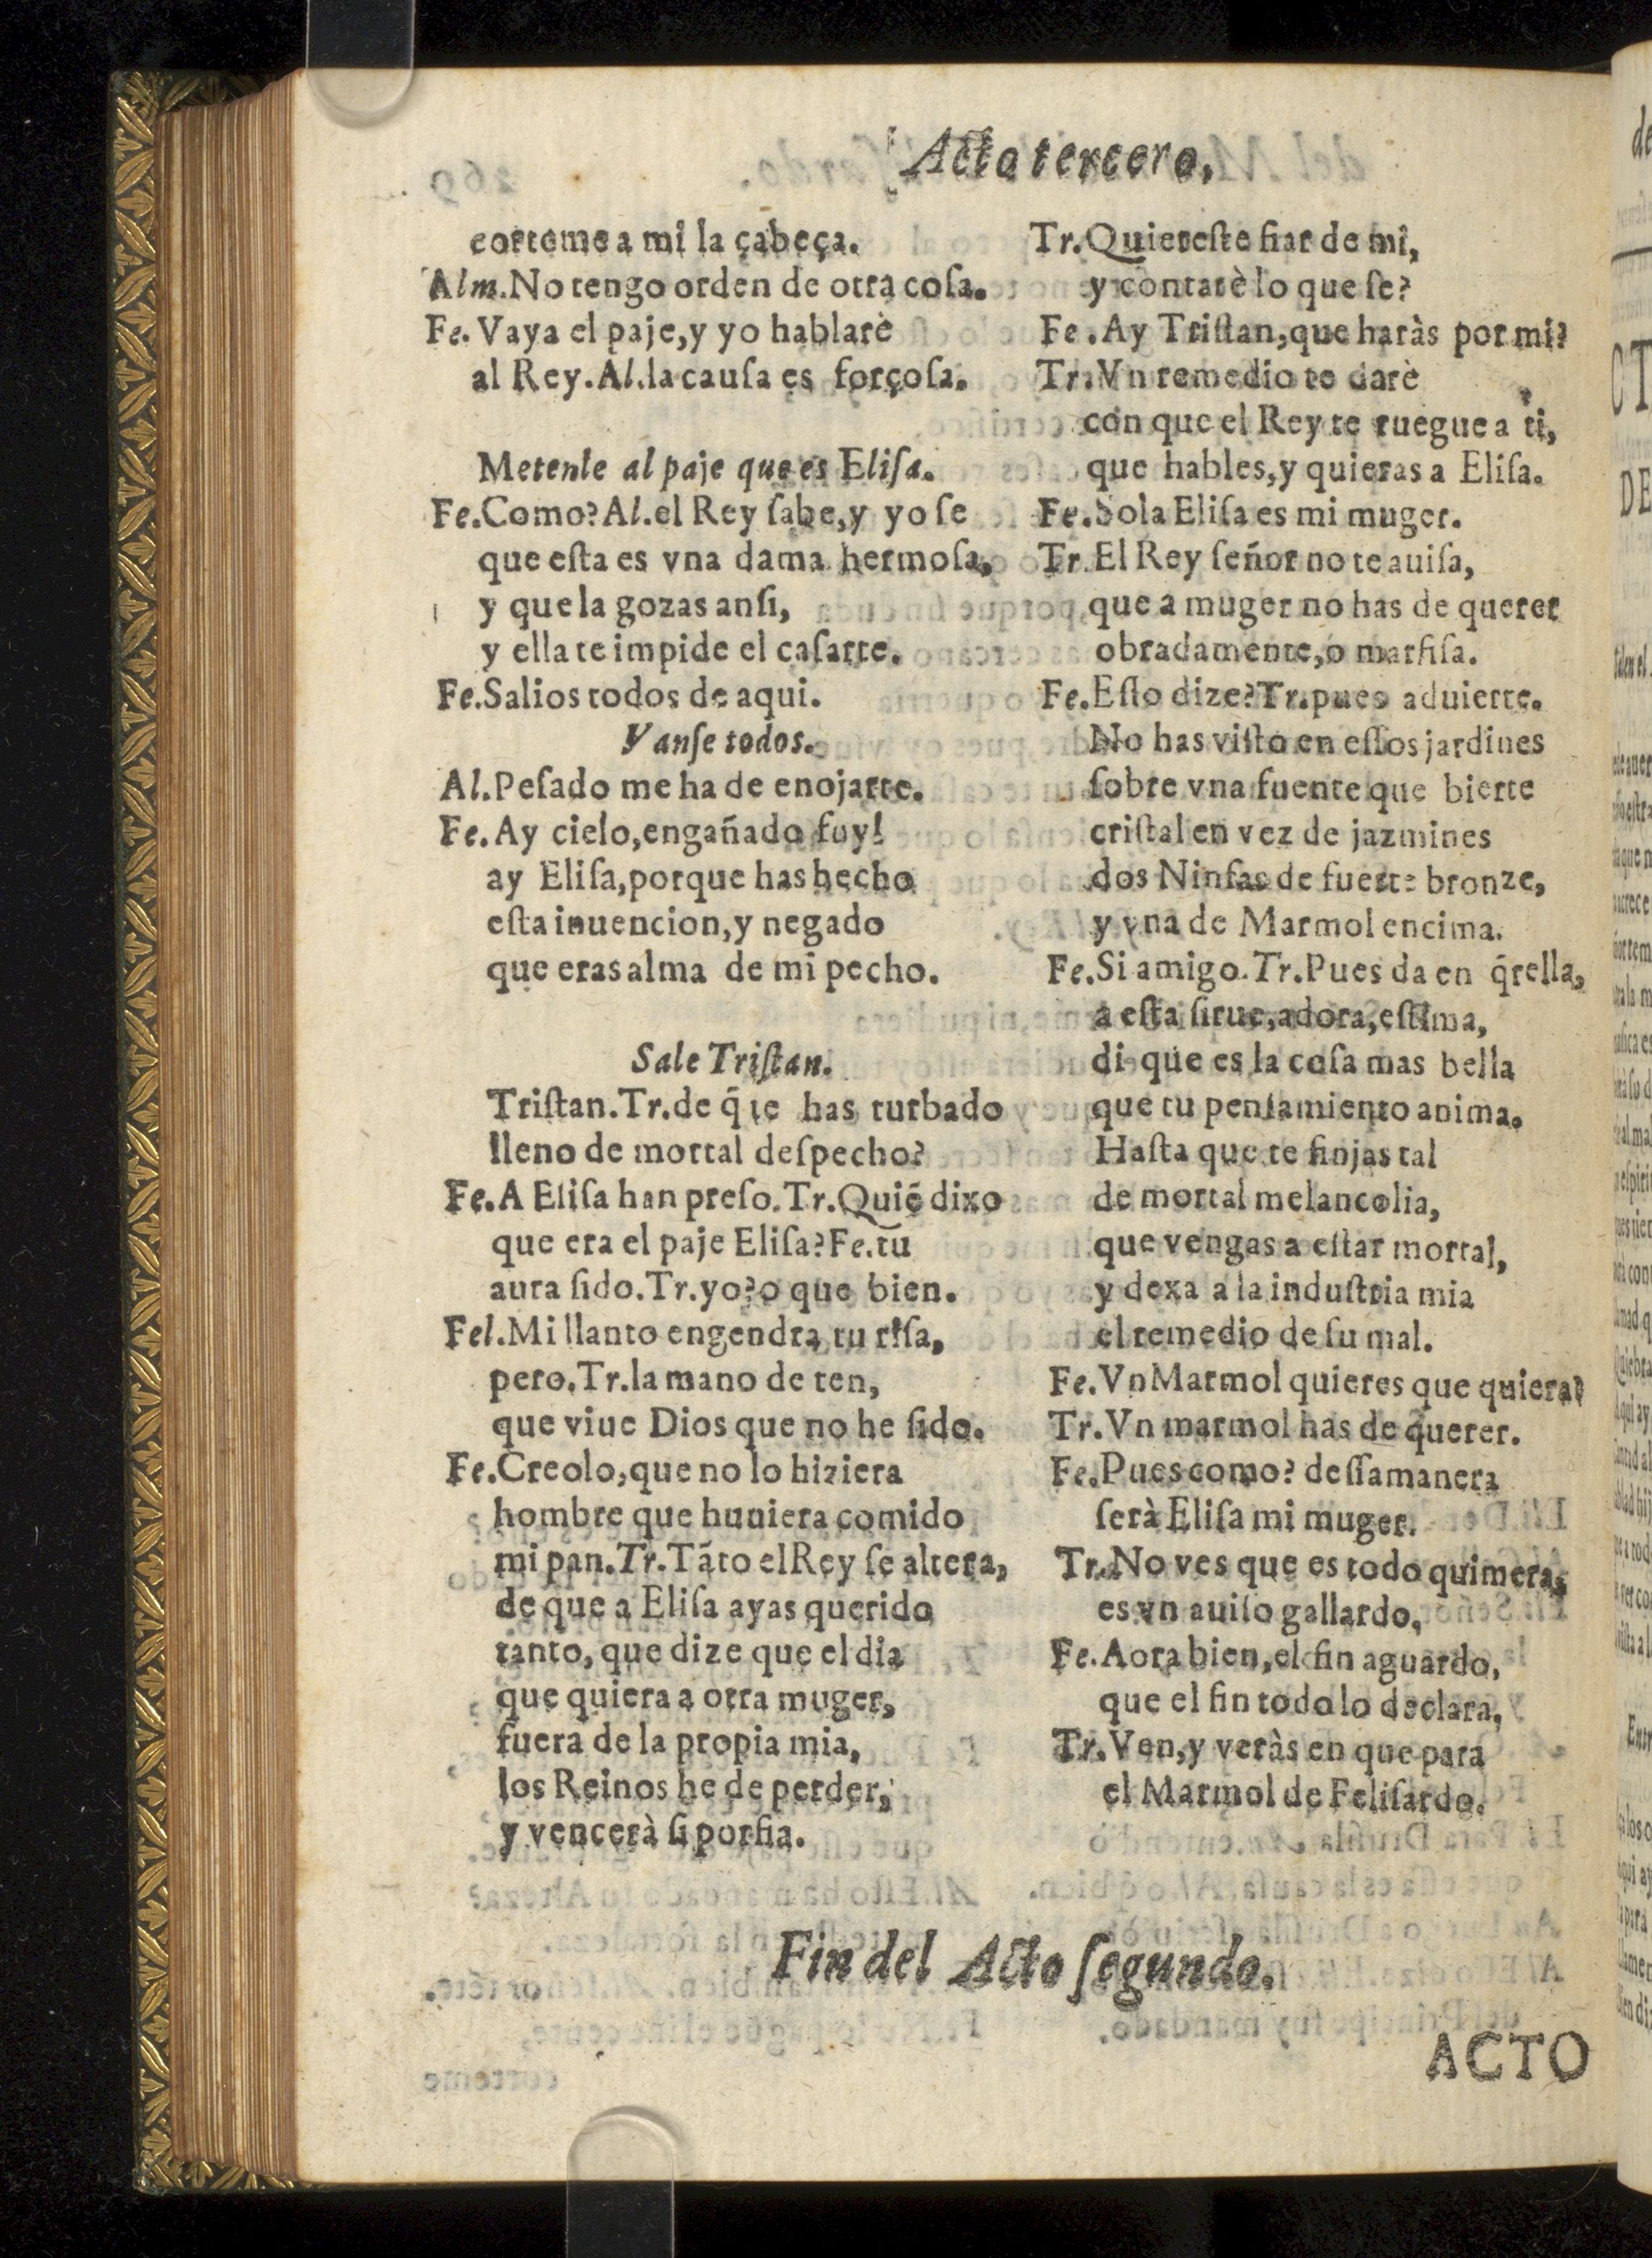 Acto tercero,
corteme a mi la çabeça.
Alm. No tengo orden de otra cosa.
Fe. Vaya el paje, y yo hablarè
al Rey. Al. la causa es forçosa.
Metenle al paje que es Elisa.
Fe. Como? Al. el Rey sabe, y yo se
que esta es vna dama hermosa,
y que la gozas ansi,
y ella te impide el casarte.
Fe. Salios todos de aqui.
Vanse todos.
Al. Pesado me ha de enojarte.
Fe. Ay cielo, engañado fuy!
ay Elisa, porque has hecho
esta inuencion, y negado
que eras alma de mi pecho.
Sale Tristan.
Tristan. Tr. de q̃ te has turbado
lleno de mortal despecho?
Fe. A Elisa han preso. Tr. Quiẽ dixo
que era el paje Elisa? Fe. tu
aura sido. Tr. yo? o que bien.
Fel. Mi llanto engendra tu risa,
pero. Tr. la mano de ten,
que viue Dios que no he sido.
Fe. Creolo, que no lo hiziera
hombre que huuiera comido
mi pan. Tr. Tãto el Rey se altera,
de que a Elisa ayas querido
tanto, que dize que el dia
que quiera a otra muger,
fuera de la propia mia,
los Reinos he de perder,
y vencerà si porfia.
Tr. Quiereste fiar de mi,
y contarè lo que se?
Fe. Ay Tristan, que haràs por mi?
Tr. Vn remedio te darè
con que el Rey te ruegue a ti,
que hables, y quieras a Elisa.
Fe. Sola Elisa es mi muger.
Tr. El Rey señor no te auisa,
que a muger no has de querer
obradamente, o marfisa.
Fe. Esto dize? Tr. pues aduierte.
No has visto en essos jardines
sobre vna fuente que bierte
cristal en vez de jazmines
dos Ninfas de fuerte bronze,
y vna de Marmol encima.
Fe. Si amigo. Tr. Pues da en q̃rella,
a esta sirue, adora, estima,
di que es la cosa mas bella
que tu pensamiento anima.
Hasta que te finjas tal
de mortal melancolia,
que vengas a estar mortal,
y dexa a la industria mia
el remedio de su mal.
Fe. Vn Marmol quieres que quiera?
Tr. Vn marmol has de querer.
Fe. Pues como? dessa manera
serà Elisa mi muger.
Tr. No ves que es todo quimera,
es vn auiso gallardo,
Fe. Aora bien, el fin aguardo,
que el fin todo lo declara,
Tr. Ven, y veràs en que para
el Marmol de Felisardo.
Fin del Acto segundo.
ACTO